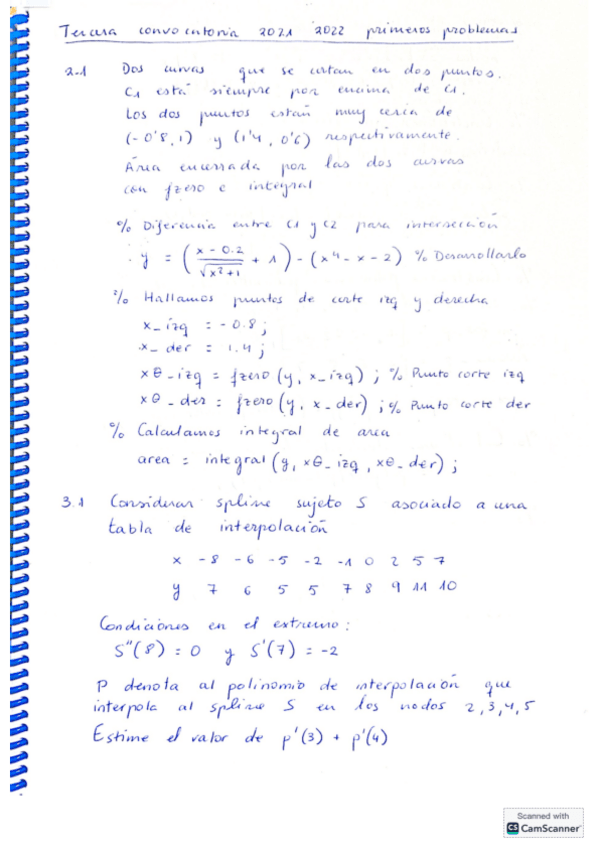 Tercera convocatoria 2021 2022 primeros problemas
2.1 Dos curvas que se cortan en dos puntos.
C1 está siempre por encima de C1.
Los dos puntos están muy cerca de
(-0'8,1) y (1'4, 0'6) respectivamente.
Área encerrada por las dos curvas
con fzero e integral
% Diferencia entre C1 y C2 para intersección
y = ( (x - 0.2)/√(x²+1) + 1 ) - (x⁴ - x - 2) % Desarrollarlo
% Hallamos puntos de corte izq y derecha
x_izq = -0.8;
x_der = 1.4;
x0_izq = fzero(y, x_izq); % Punto corte izq
x0_der = fzero(y, x_der); % Punto corte der
% Calculamos integral de area
area = integral(y, x0_izq, x0_der);
3.1 Considerar spline sujeto S asociado a una
tabla de interpolación
x -8 -6 -5 -2 -1 0 2 5 7
y 7 6 5 5 7 8 9 11 10
Condiciones en el extremo:
S''(8) = 0 y S'(7) = -2
P denota al polinomio de interpolación que
interpola al spline S en los nodos 2,3,4,5
Estime el valor de p'(3) + p'(4)
Scanned with
CS CamScanner